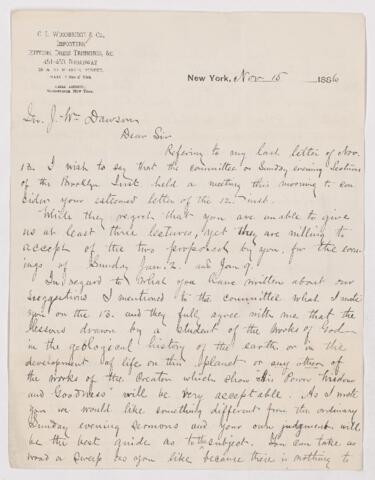 C. L. Woodbridge & Co.
Importers
Buttons, Dress Trimmings, &c.
451-453 Broadway
New York, Nov 15 1886
J. Wm Dawson
Dear Sir
Refering to my last letter of Nov.
13. I wish to say that the committee on Sunday evening lectures
of the Brooklyn Inst. held a meeting this morning to con-
sider your esteemed letter of the 12. inst.
While they regret that you are unable to give
us at least three lectures, yet they are willing to
accept of the two proposed by you, for the even-
ings of Sunday Jan. 2. and Jan 9.
In regard to what you have written about our
suggestions I mentioned to the committee what I wrote
you on the 13. and they fully agree with me that the
lessons drawn by a student of the works of God
in the geological history of the earth or in the
development of life on this planet or any other of
the works of the Creator which show His Power Wisdom
and Goodness will be very acceptable. As I wrote
you we would like something different from the ordinary
Sunday evening sermons and your own judgment will
be the best guide as to the subject. You can take as
broad a sweep as you like because there is nothing to